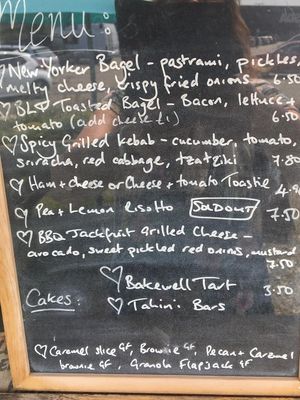 Menu:
New Yorker Bagel - pastrami, pickles,
melty cheese, crispy fried onions 6.50
BLT Toasted Bagel - Bacon, lettuce +
tomato (add cheese £1) 6.50
Spicy Grilled kebab - cucumber, tomato,
sriracha, red cabbage, tzatziki 7.80
Ham + cheese or Cheese + tomato Toastie
Pea + Lemon Risotto SOLD OUT 7.50
BBQ Jackfruit Grilled Cheese -
avocado, sweet pickled red onions, mustard
7.50
Bakewell Tart 3.50
Cakes: Tahini Bars
Caramel slice GF, Brownie GF, Pecan + Caramel
brownie GF, Granola Flapjack GF